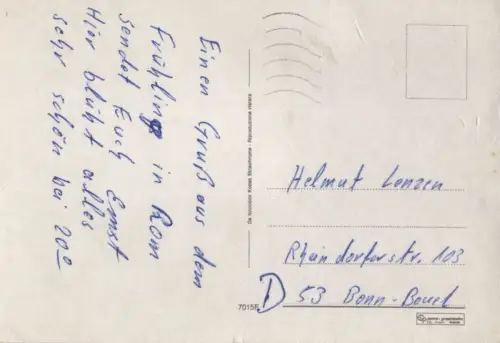 Einen Gruß aus dem
Frühling in Rom
sendet Euch Ernst
Hier blüht alles
sehr schön bei 20°
Da fotocolor Kodak Ektachrome - Riproduzione vietata
Helmut Lenzen
Rheindorferstr. 103
D 53 Bonn-Beuel